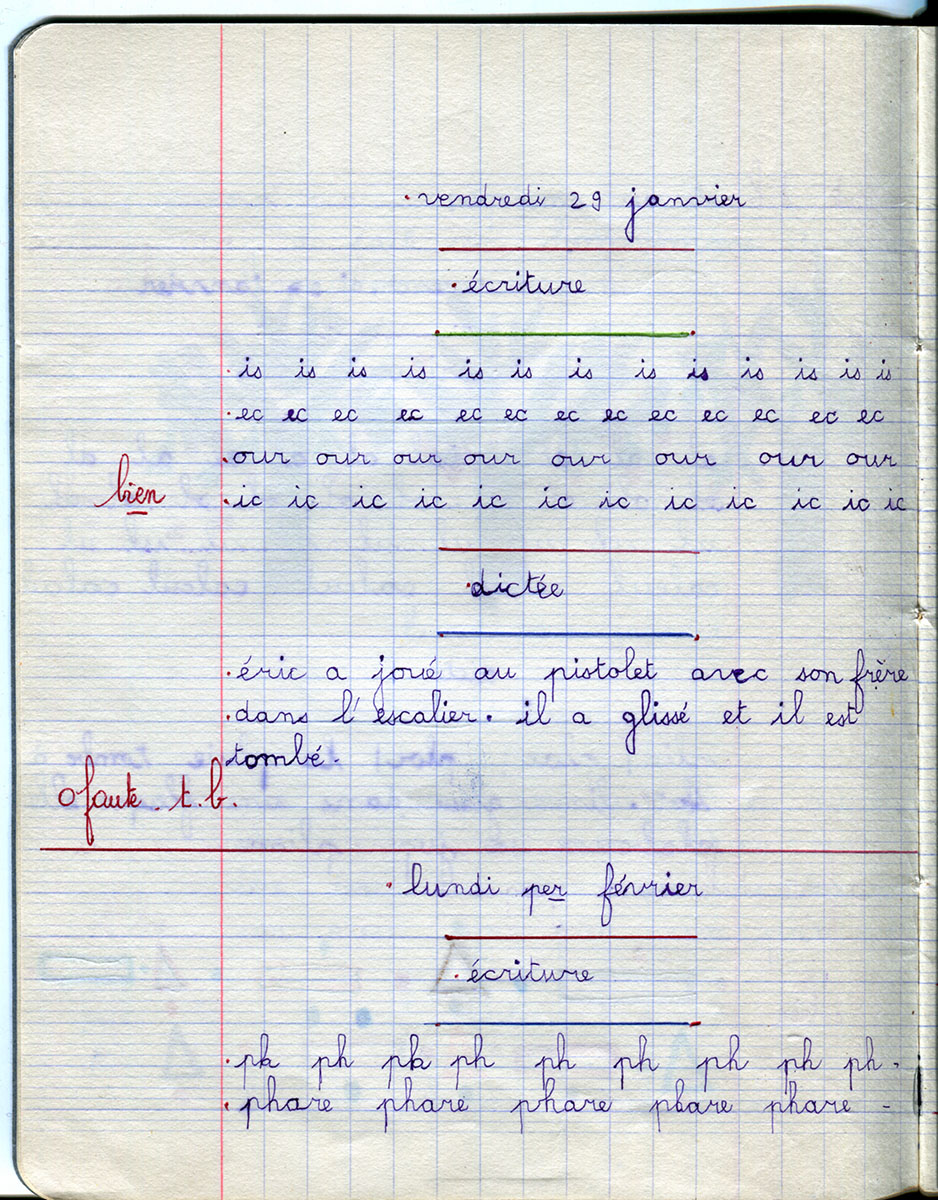 vendredi 29 janvier
écriture
is is is is is is is is is is is is is
ec ec ec ec ec ec ec ec ec ec ec ec ec
our our our our our our our our
bien
ic ic ic ic ic ic ic ic ic ic ic ic
dictée
éric a joué au pistolet avec son frère
dans l'escalier. il a glissé et il est
tombé.
0 faute. t.b.
lundi per février
écriture
ph ph ph ph ph ph ph ph ph.
phare phare phare phare phare -